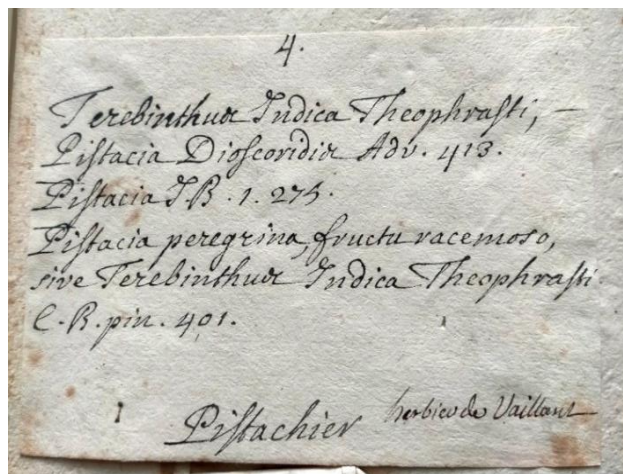 4.
Terebinthus Indica Theophrasti, –
Pistacia Dioscoridis Adv. 413.
Pistacia J.B. 1. 275.
Pistacia peregrina, fructu racemoso,
sive Terebinthus Indica Theophrasti
C.B. pin. 401.
1 Pistachier herbier de Vaillant